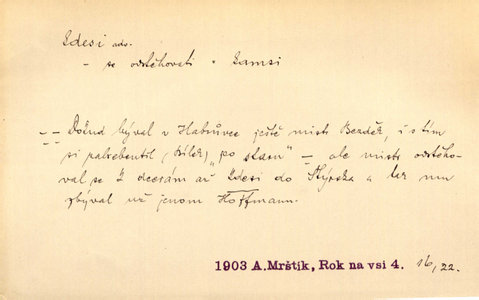 Kdesi adv.
- se odstěhovati v Kamsi
-- Dokud býval v Habrůvce ještě mistr Bezděk, i s tím
si zatrebentil (Kílek) "po staru" — ale mistr odstěho-
val se k dcerám až kdesi do Štýrska a tak mu
zbýval už jenom Hoffmann.
1903 A. Mrštík, Rok na vsi 4. 16/22.